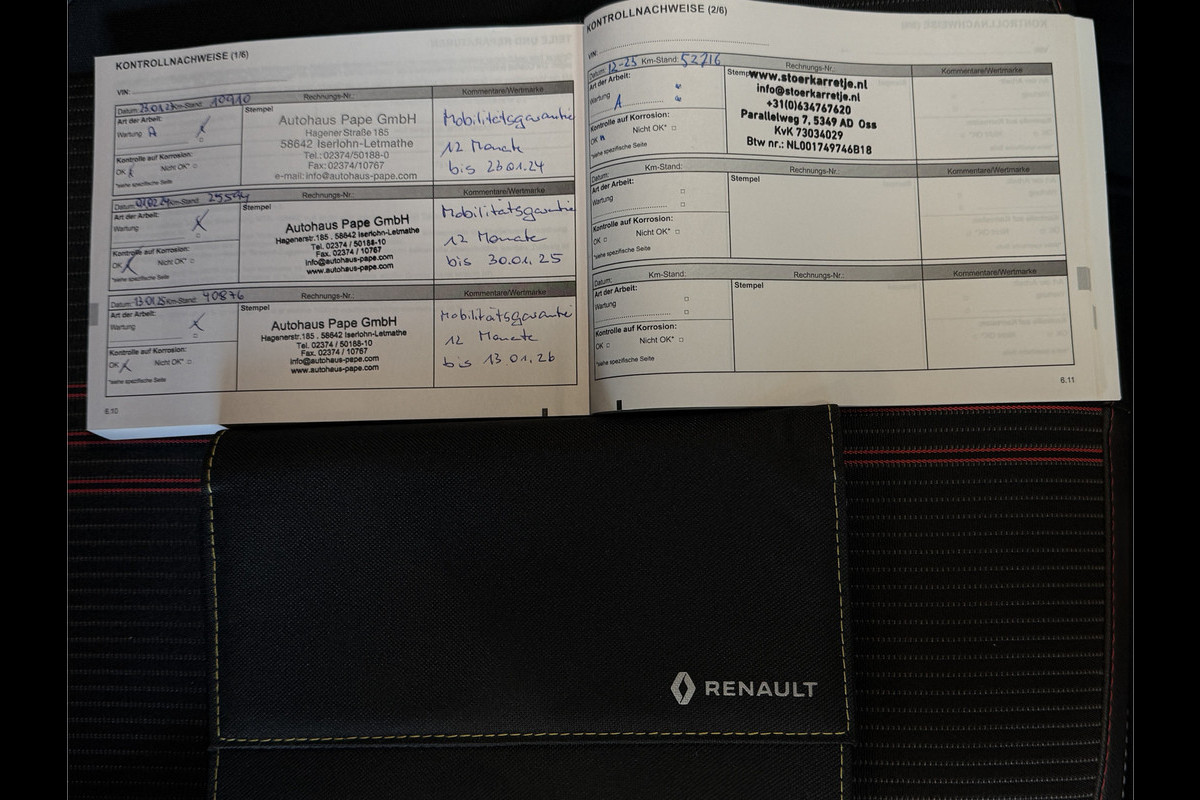 KONTROLLNACHWEISE (1/6)
VIN:
Datum: 23.01.23 Km-Stand: 10910 Rechnungs-Nr.: Kommentare/Wertmarke
Art der Arbeit:
Wartung A
Kontrolle auf Korrosion:
OK Nicht OK*
*siehe spezifische Seite
Stempel
Autohaus Pape GmbH
Hagener Straße 185
58642 Iserlohn-Letmathe
Tel.: 02374/50188-0
Fax: 02374/10767
e-mail: info@autohaus-pape.com
Mobilitätsgarantie
12 Monate
bis 23.01.24
Datum: Km-Stand: Rechnungs-Nr.: Kommentare/Wertmarke
Art der Arbeit:
Wartung
Kontrolle auf Korrosion:
OK Nicht OK*
*siehe spezifische Seite
Stempel
Autohaus Pape GmbH
Hagenerstr.185 . 58642 Iserlohn-Letmathe
Tel. 02374 / 50188-10
Fax. 02374 / 10767
info@autohaus-pape.com
www.autohaus-pape.com
Mobilitätsgarantie
12 Monate
bis 30.01.25
Datum: 13.01.25 Km-Stand: 40876 Rechnungs-Nr.: Kommentare/Wertmarke
Art der Arbeit:
Wartung
Kontrolle auf Korrosion:
OK Nicht OK*
*siehe spezifische Seite
Stempel
Autohaus Pape GmbH
Hagenerstr.185 . 58642 Iserlohn-Letmathe
Tel. 02374 / 50188-10
Fax. 02374 / 10767
info@autohaus-pape.com
www.autohaus-pape.com
Mobilitätsgarantie
12 Monate
bis 13.01.26
6.10
KONTROLLNACHWEISE (2/6)
VIN:
Datum: 12-25 Km-Stand: 52716 Rechnungs-Nr.: Kommentare/Wertmarke
Art der Arbeit:
Wartung A
Kontrolle auf Korrosion:
OK Nicht OK*
*siehe spezifische Seite
www.stoerkarretje.nl
info@stoerkarretje.nl
+31(0)634767620
Parallelweg 7, 5349 AD Oss
KvK 73034029
Btw nr.: NL001749746B18
Datum: Km-Stand: Rechnungs-Nr.: Kommentare/Wertmarke
Art der Arbeit:
Wartung
Kontrolle auf Korrosion:
OK Nicht OK*
*siehe spezifische Seite
Stempel
Datum: Km-Stand: Rechnungs-Nr.: Kommentare/Wertmarke
Art der Arbeit:
Wartung
Kontrolle auf Korrosion:
OK Nicht OK*
*siehe spezifische Seite
Stempel
6.11
RENAULT